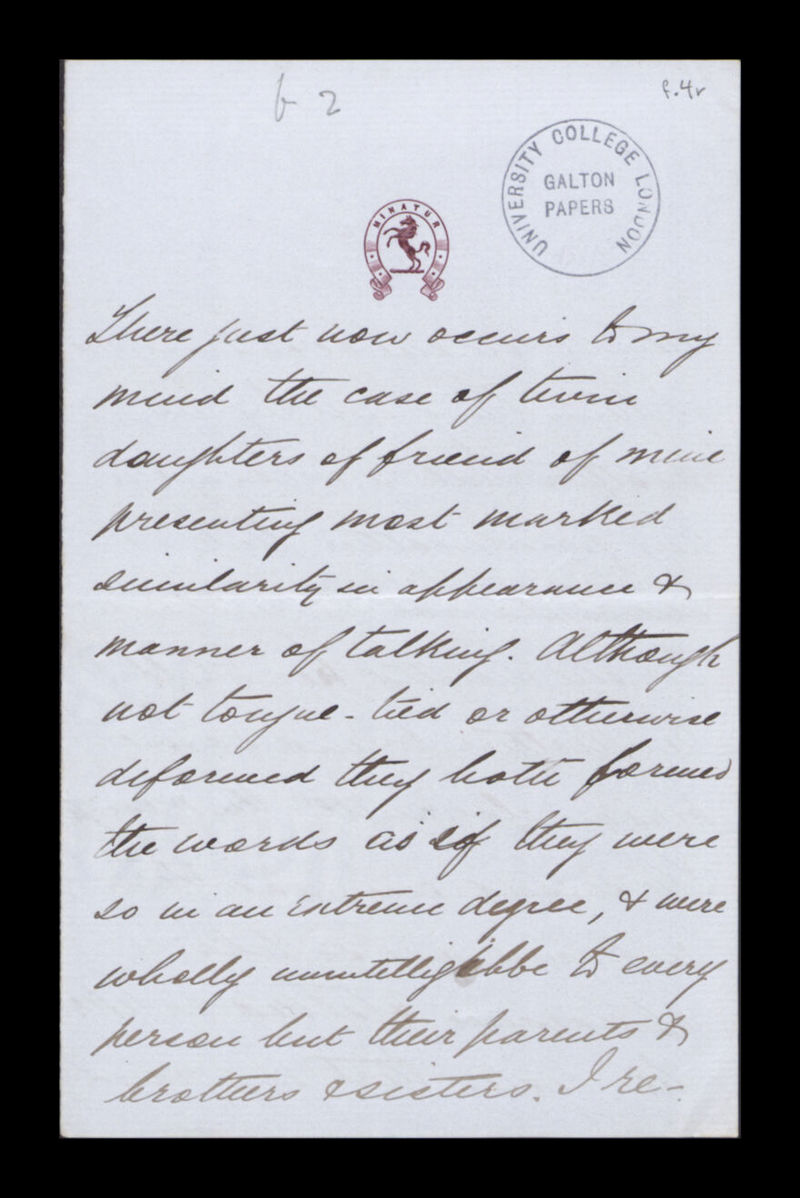 b 2
f.4r
UNIVERSITY COLLEGE LONDON
GALTON
PAPERS
MINATUR
There just now occurs to my
mind the case of twin
daughters of friend of mine
presenting most marked
similarity in appearance &
manner of talking. Although
not tongue-tied or otherwise
deformed they both formed
the words as if they were
so in an extreme degree, & were
wholly unintelligible to every
person but their parents &
brothers & sisters. I re-